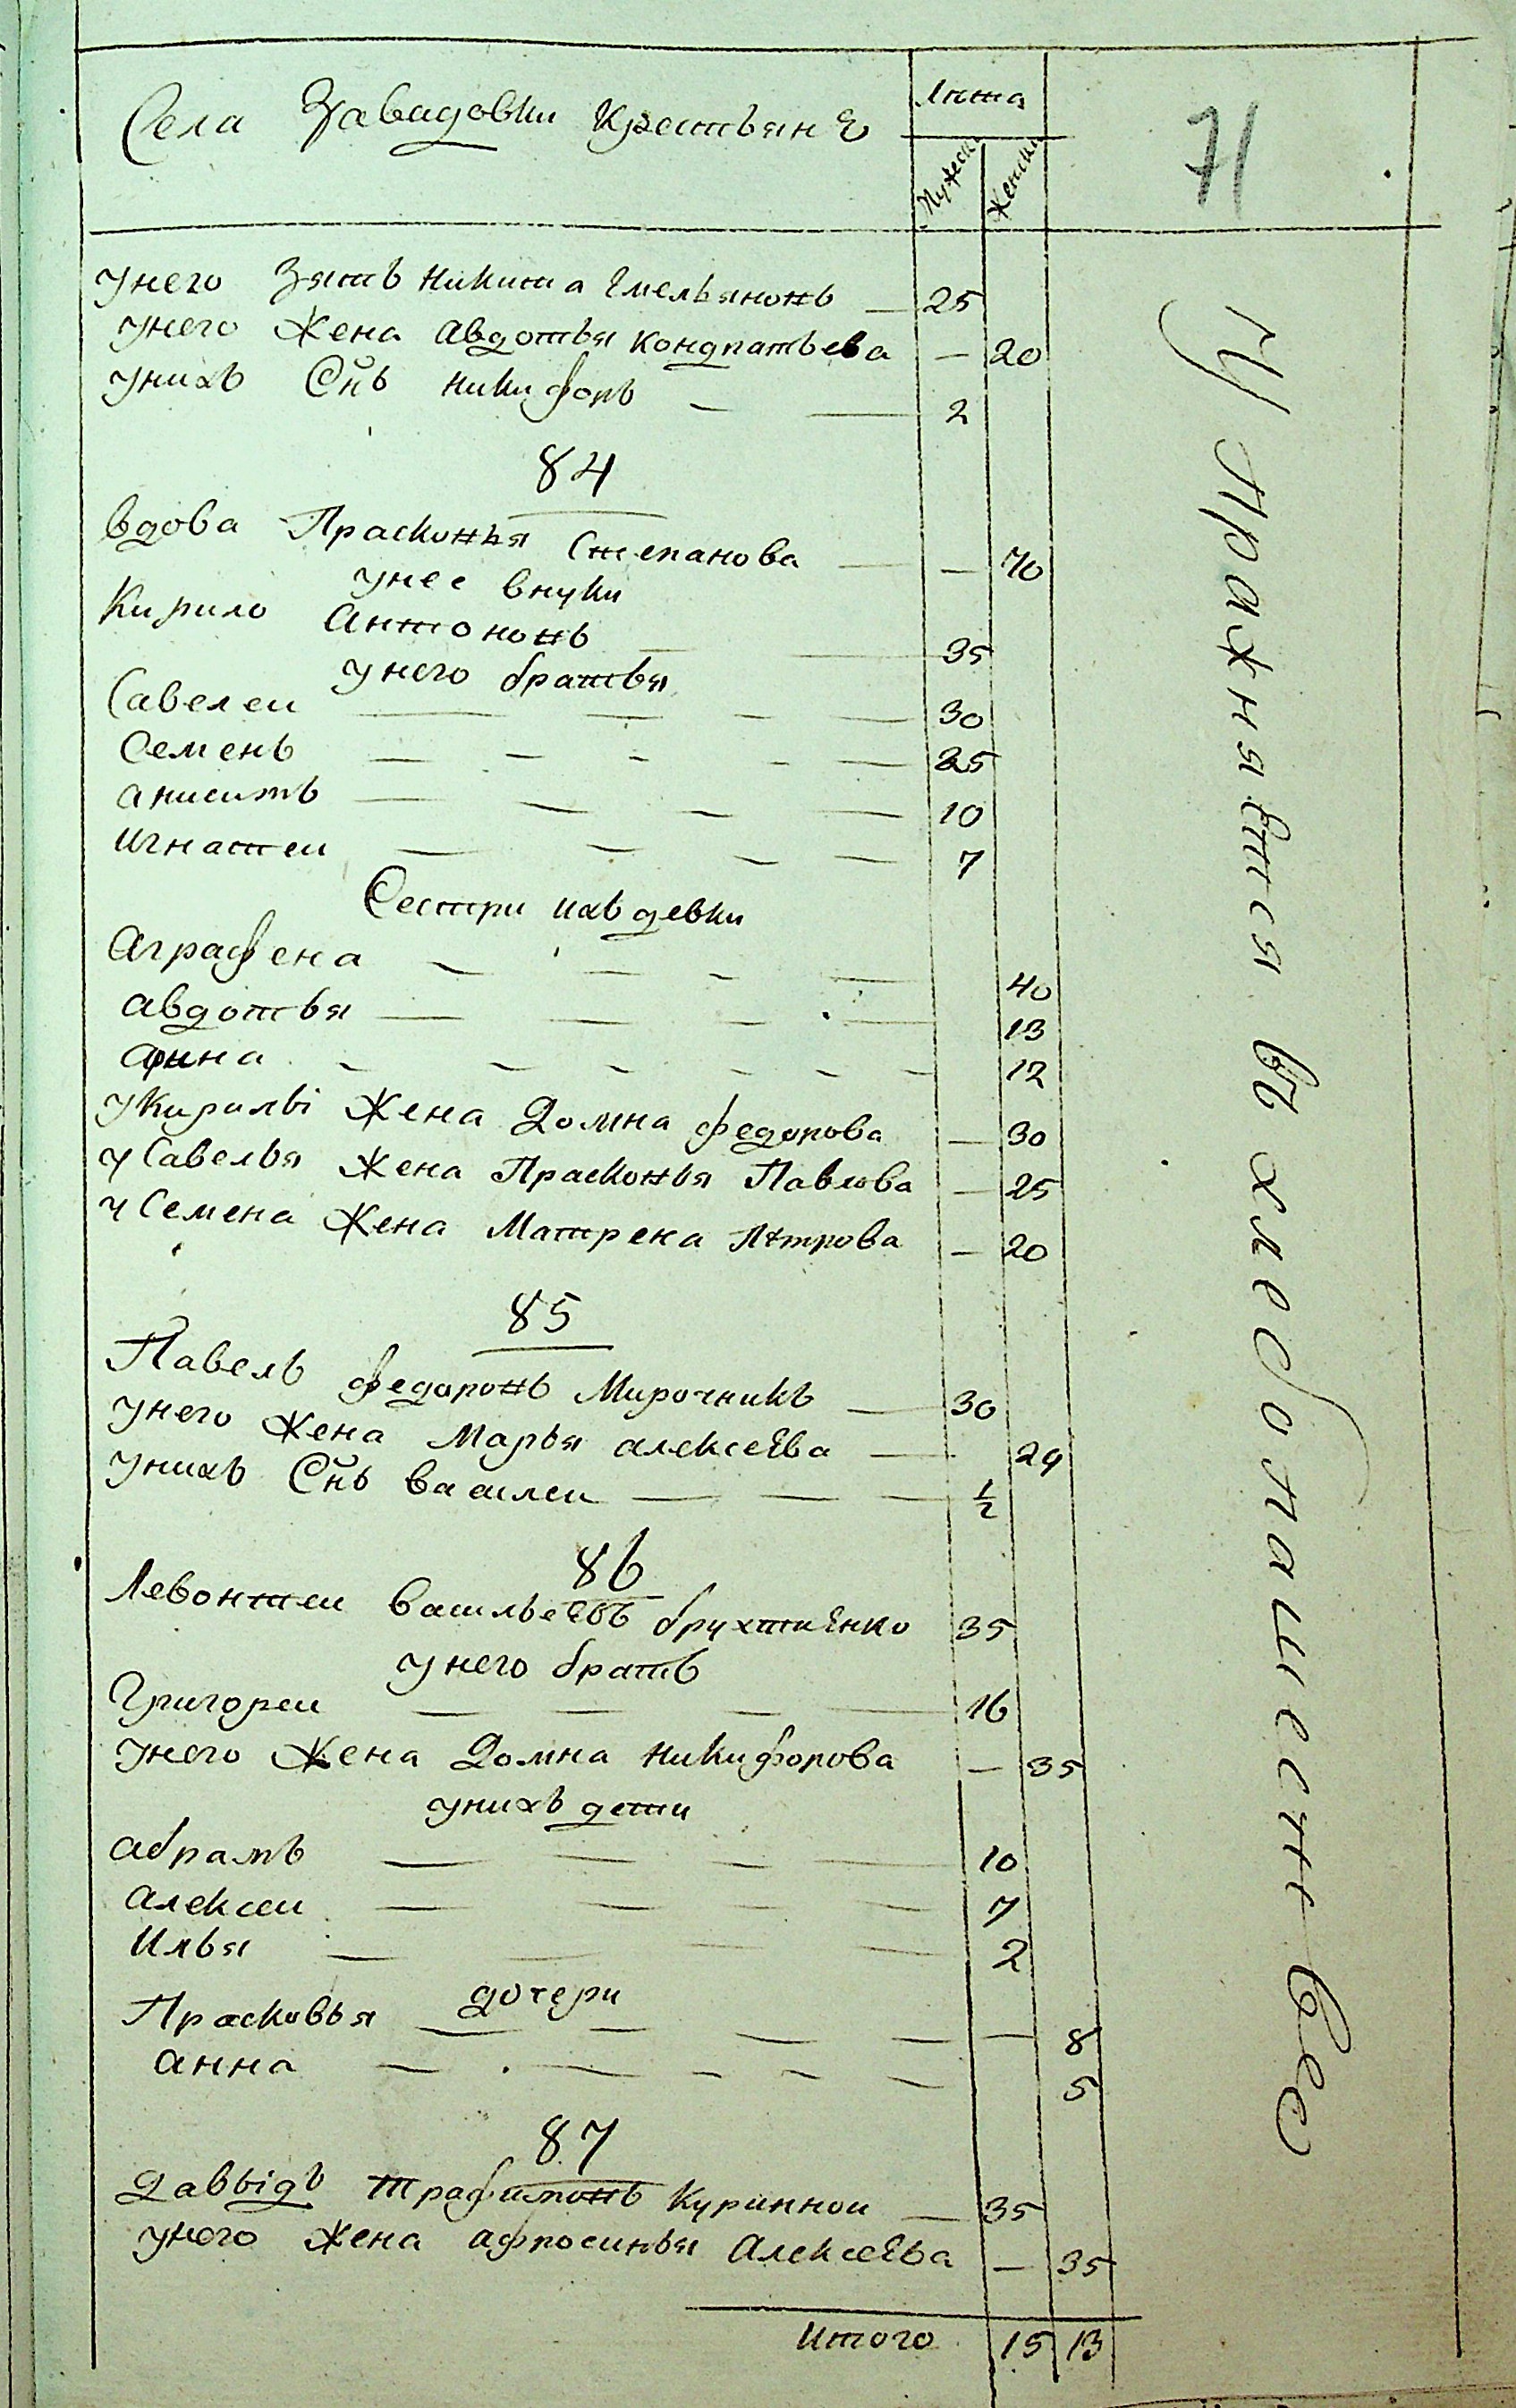 Села Завадовки крестьянЕ
Лѣта
Мужеск
Женски
71
унего Зять никита Емельяновъ — 25
унего Жена Авдотья кондратьева — 20
унихъ Снъ никифоръ — 2
84
вдова Прасковья Степанова — 70
унее внуки
Кирило Антоновъ 35
унего братья
Савелеи — 30
Семенъ — 25
анисимъ — 10
игнатеи — 7
Сестри ихъ девки
Аграфена — 40
авдотья — 13
анна — 12
уКирилы Жена Домна федорова — 30
уСавелья Жена Прасковья Павлова — 25
уСемена Жена Матрена Петрова — 20
85
Павелъ федоровъ Мирочникъ — 30
унего Жена Марья алексеЕва — 29
унихъ Снъ василеи — 1/2
86
Левонтеи васильеЕвъ брухтиЕнко 35
унего братъ
Григореи — 16
унего Жена Домна никифорова — 35
унихъ дети
абрамъ — 10
алексеи — 7
илья — 2
дочери
Прасковья — 8
анна — 5
87
давыдъ трафимовъ Куринной — 35
унего Жена афросинья АлексеЕва — 35
Итого 15 13
Упражняются въ хлебопашестве